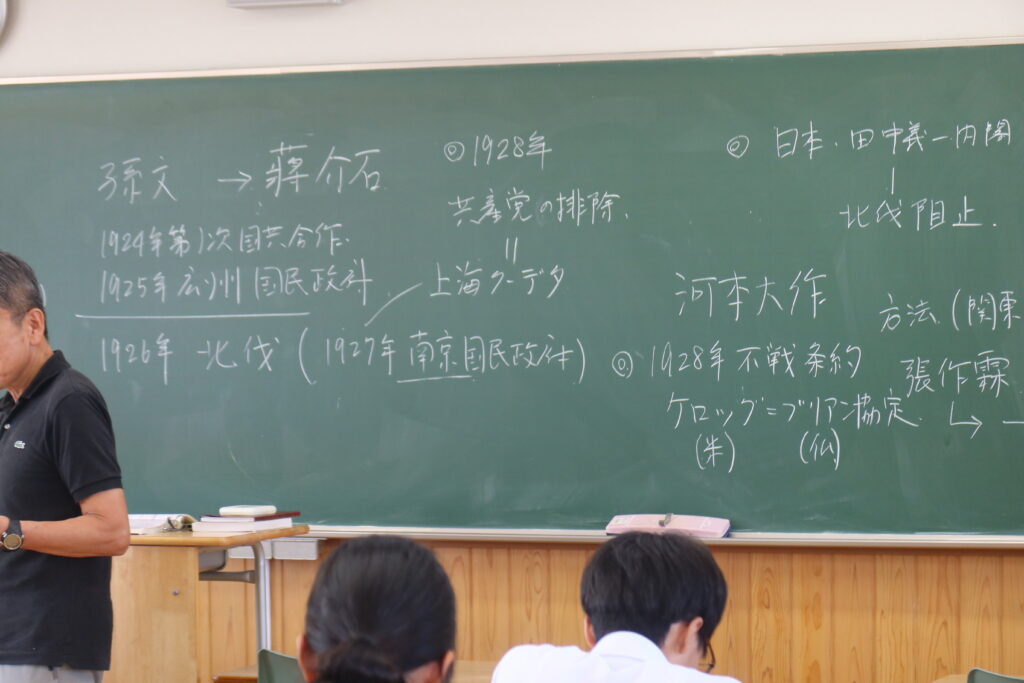 孫文 → 蔣介石
1924年第1次国共合作.
1925年広州国民政府
1926年 北伐 (1927年南京国民政府)
◎1928年
共産党の排除.
॥
上海クーデタ
◎ 日本.田中義一内閣
|
北伐阻止.
河本大作
方法.(関東
◎1928年不戦条約
ケロッグ=ブリアン協定.
(米) (仏)
張作霖
↳ —